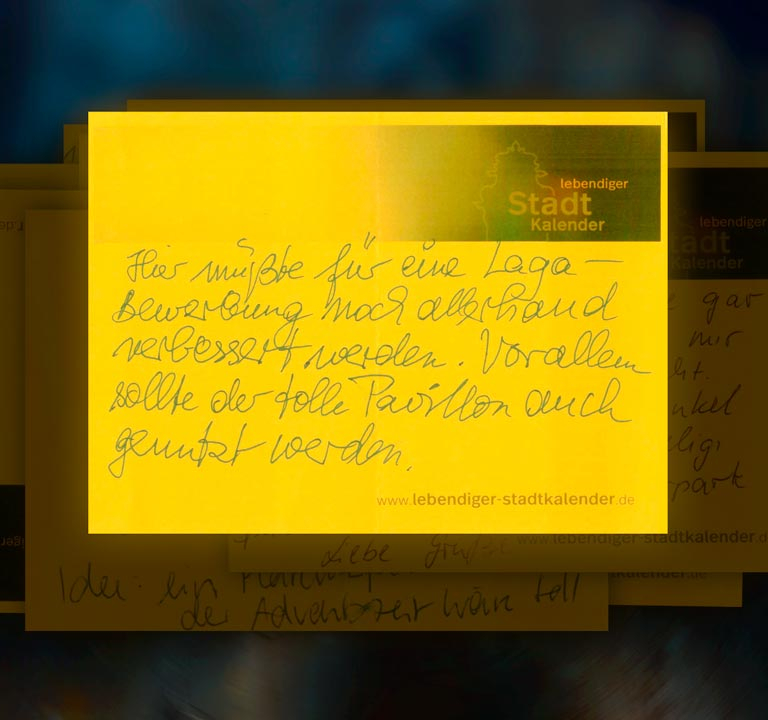 lebendiger
Stadt
Kalender
Hier müßte für eine Laga-
Bewerbung noch allerhand
verbessert werden. Vor allem
sollte der tolle Pavillon auch
genutzt werden.
www.lebendiger-stadtkalender.de
lebendiger
tadt
Kalender
gar
mir
nkel
park
www.lebendiger-stadtkalender.d
Liebe Grüße
stadtkalender.de
Idee: ein
der Adventszeit wäre toll